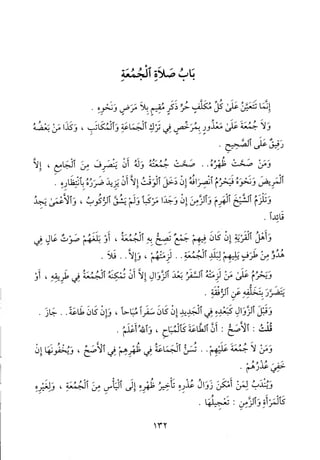 بَابُ صَلَاةِ ٱلْجُمُعَةِ
إِنَّمَا تَتَعَيَّنُ عَلَىٰ كُلِّ مُكَلَّفٍ حُرٍّ ذَكَرٍ مُقِيمٍ بِلَا مَرَضٍ وَنَحْوِهِ .
وَلَا جُمُعَةَ عَلَىٰ مَعْذُورٍ بِمُرَخِّصٍ فِي تَرْكِ ٱلْجَمَاعَةِ وَٱلْمُكَاتَبِ ، وَكَذَا مَنْ بَعْضُهُ
رَقِيقٌ عَلَى ٱلصَّحِيحِ .
وَمَنْ صَحَّتْ ظُهْرُهُ .. صَحَّتْ جُمُعَتُهُ وَلَهُ أَنْ يَنْصَرِفَ مِنَ ٱلْجَامِعِ ، إِلَّا
ٱلْمَرِيضَ وَنَحْوَهُ فَيَحْرُمُ ٱنْصِرَافُهُ إِنْ دَخَلَ ٱلْوَقْتُ إِلَّا أَنْ يَزِيدَ ضَرَرُهُ بِٱنْتِظَارِهِ .
وَتَلْزَمُ ٱلشَّيْخَ ٱلْهَرِمَ وَٱلزَّمِنَ إِنْ وَجَدَا مَرْكَباً وَلَمْ يَشُقَّ ٱلرُّكُوبُ ، وَٱلْأَعْمَىٰ يَجِدُ
قَائِداً .
وَأَهْلُ ٱلْقَرْيَةِ إِنْ كَانَ فِيهِمْ جَمْعٌ تَصِحُّ بِهِ ٱلْجُمُعَةُ ، أَوْ بَلَغَهُمْ صَوْتٌ عَالٍ فِي
هُدُوٍّ مِنْ طَرَفٍ يَلِيهِمْ لِبَلَدِ ٱلْجُمُعَةِ .. لَزِمَتْهُمْ ، وَإِلَّا .. فَلَا .
وَيَحْرُمُ عَلَىٰ مَنْ لَزِمَتْهُ ٱلسَّفَرُ بَعْدَ ٱلزَّوَالِ إِلَّا أَنْ تُمْكِنَهُ ٱلْجُمُعَةُ فِي طَرِيقِهِ ، أَوْ
يَتَضَرَّرَ بِتَخَلُّفِهِ عَنِ ٱلرُّفْقَةِ .
وَقَبْلَ ٱلزَّوَالِ كَبَعْدِهِ فِي ٱلْجَدِيدِ إِنْ كَانَ سَفَراً مُبَاحاً ، وَإِنْ كَانَ طَاعَةً .. جَازَ .
قُلْتُ : ٱلْأَصَحُّ : أَنَّ ٱلطَّاعَةَ كَٱلْمُبَاحِ ، وَٱللهُ أَعْلَمُ .
وَمَنْ لَا جُمُعَةَ عَلَيْهِمْ .. تُسَنُّ ٱلْجَمَاعَةُ فِي ظُهْرِهِمْ فِي ٱلْأَصَحِّ ، وَيُخْفُونَهَا إِنْ
خَفِيَ عُذْرُهُمْ .
وَيُنْدَبُ لِمَنْ أَمْكَنَ زَوَالُ عُذْرِهِ تَأْخِيرُ ظُهْرِهِ إِلَى ٱلْيَأْسِ مِنَ ٱلْجُمُعَةِ ، وَلِغَيْرِهِ
كَٱلْمَرْأَةِ وَٱلزَّمِنِ : تَعْجِيلُهَا .
١٣٢